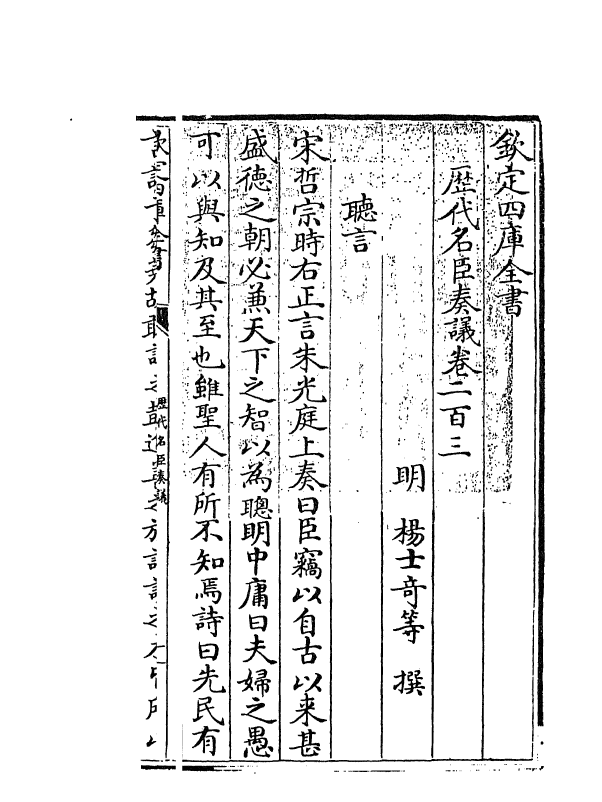 欽定四庫全書
歴代名臣奏議卷二百三
明　楊士竒等　撰
聽言
宋哲宗時右正言朱光庭上奏曰臣竊以自古以来甚
盛徳之朝必兼天下之智以為聰明中庸曰夫婦之愚
可以與知及其至也雖聖人有所不知焉詩曰先民有
歴代名臣奏議